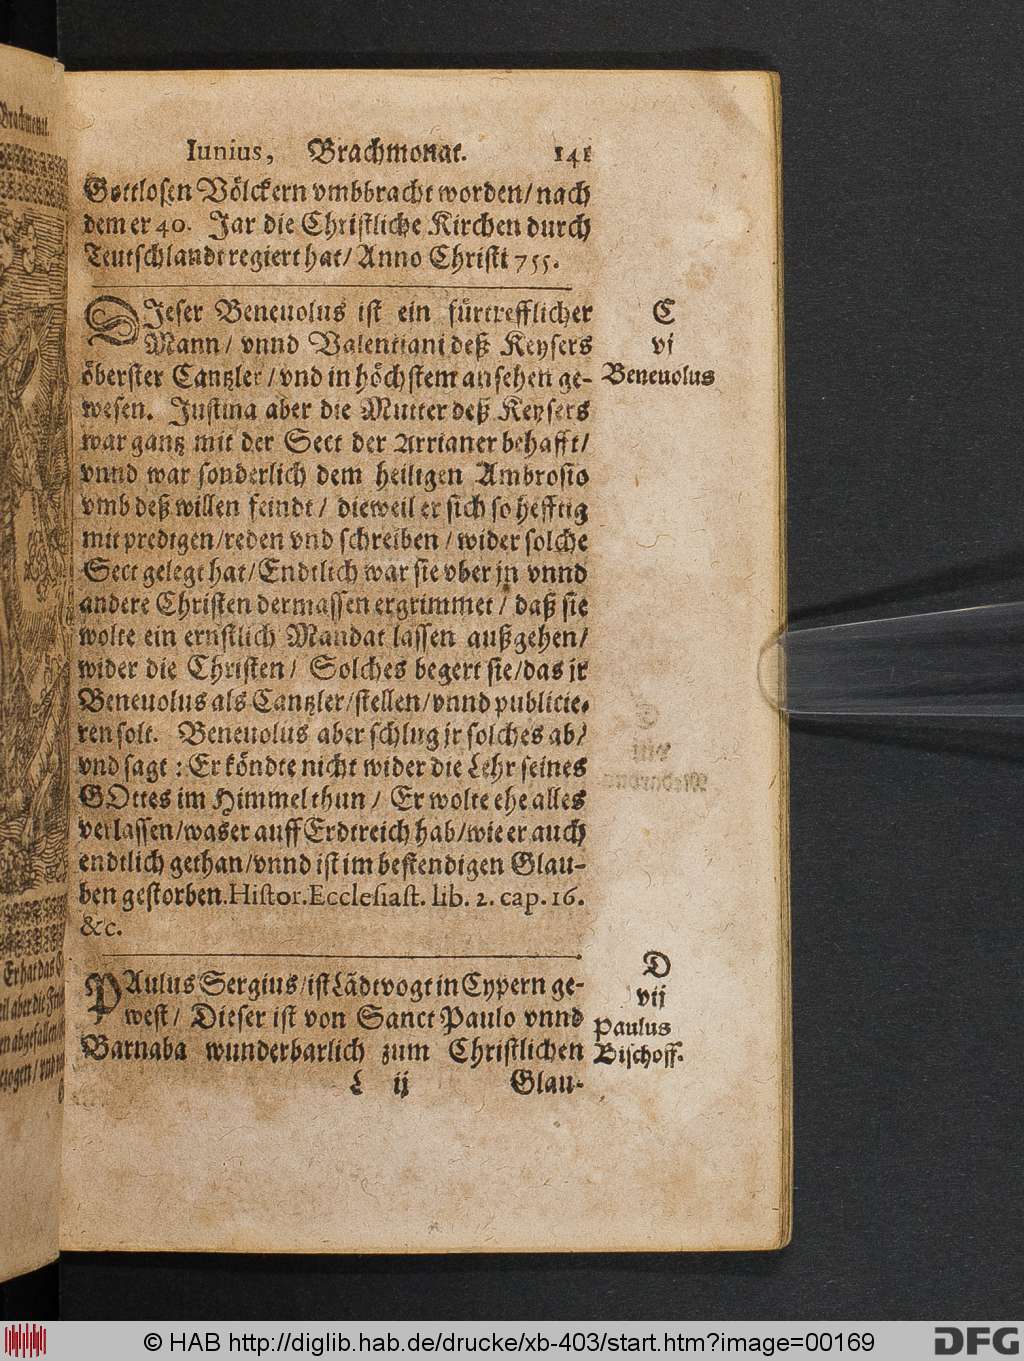 Iunius, Brachmonat. 141
Gottlosen Völckern vmbbracht worden/ nach
dem er 40. Jar die Christliche Kirchen durch
Teutschlandt regiert hat/ Anno Christi 755.
DJeser Beneuolus ist ein fürtrefflicher
Mann/ vnnd Valentiani deß Keysers
öberster Cantzler/ vnd in höchstem ansehen ge-
wesen. Justina aber die Mutter deß Keysers
war gantz mit der Sect der Arrianer behafft/
vnnd war sonderlich dem heiligen Ambrosio
vmb deß willen feindt/ dieweil er sich so hefftig
mit predigen/ reden vnd schreiben/ wider solche
Sect gelegt hat/ Endtlich war sie vber jn vnnd
andere Christen dermassen ergrimmet/ daß sie
wolte ein ernstlich Mandat lassen außgehen/
wider die Christen/ Solches begert sie/ das jr
Beneuolus als Cantzler/ stellen/ vnnd publicie-
ren solt. Beneuolus aber schlug jr solches ab/
vnd sagt: Er köndte nicht wider die Lehr seines
GOttes im Himmel thun/ Er wolte ehe alles
verlassen/ was er auff Erdtreich hab/ wie er auch
endtlich gethan/ vnnd ist im bestendigen Glau-
ben gestorben. Histor. Ecclesiast. lib. 2. cap. 16.
&c.
C
vj
Beneuolus
PAulus Sergius/ ist Lãdtvogt in Cypern ge-
west/ Dieser ist von Sanct Paulo vnnd
Barnaba wunderbarlich zum Christlichen
L ij Glau-
D
vij
Paulus
Bischoff.
Brachmonat.
Er hat das
© HAB http://diglib.hab.de/drucke/xb-403/start.htm?image=00169
DFG